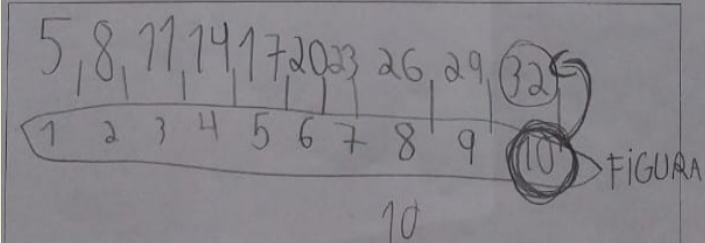 5, 8, 11, 14, 17, 20, 23 26, 29, 32
1 2 3 4 5 6 7 8 9 10 FIGURA
10